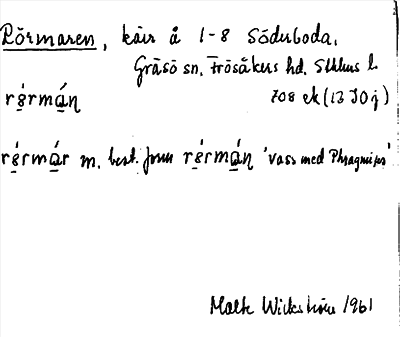 Rörmaren, kärr å 1-8 Söderboda.
Gräsö sn. Frösåkers hd. Sthlms l.
rérmán 708 ek (13 I 0 j)
rérmár m. best. form rérmán 'vass med Phragmites'
Malte Wickström 1961